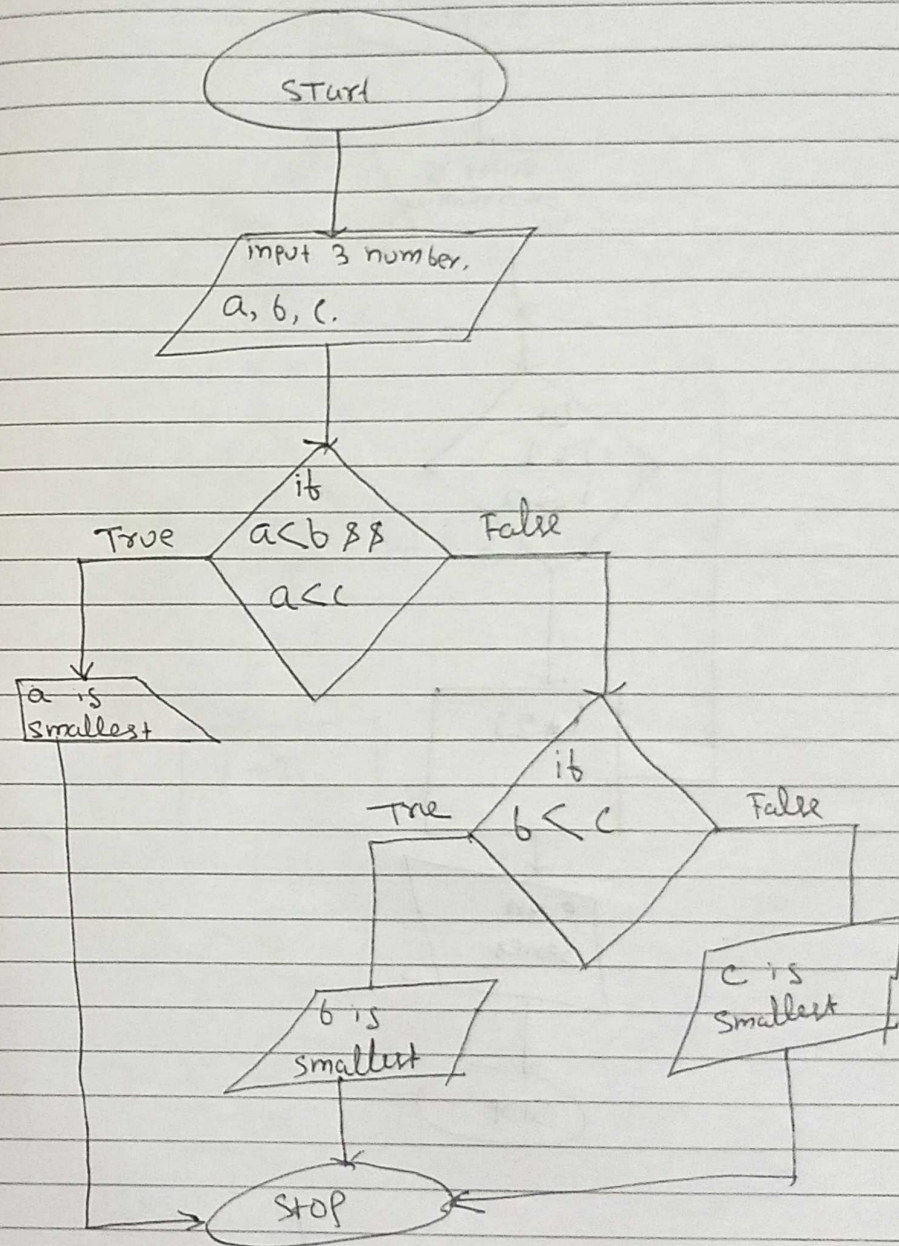 Start
input 3 number.
a, b, c.
if
a<b &&
a<c
True
False
a is
smallest
if
b < c
True
False
b is
smallest
c is
smallest
Stop